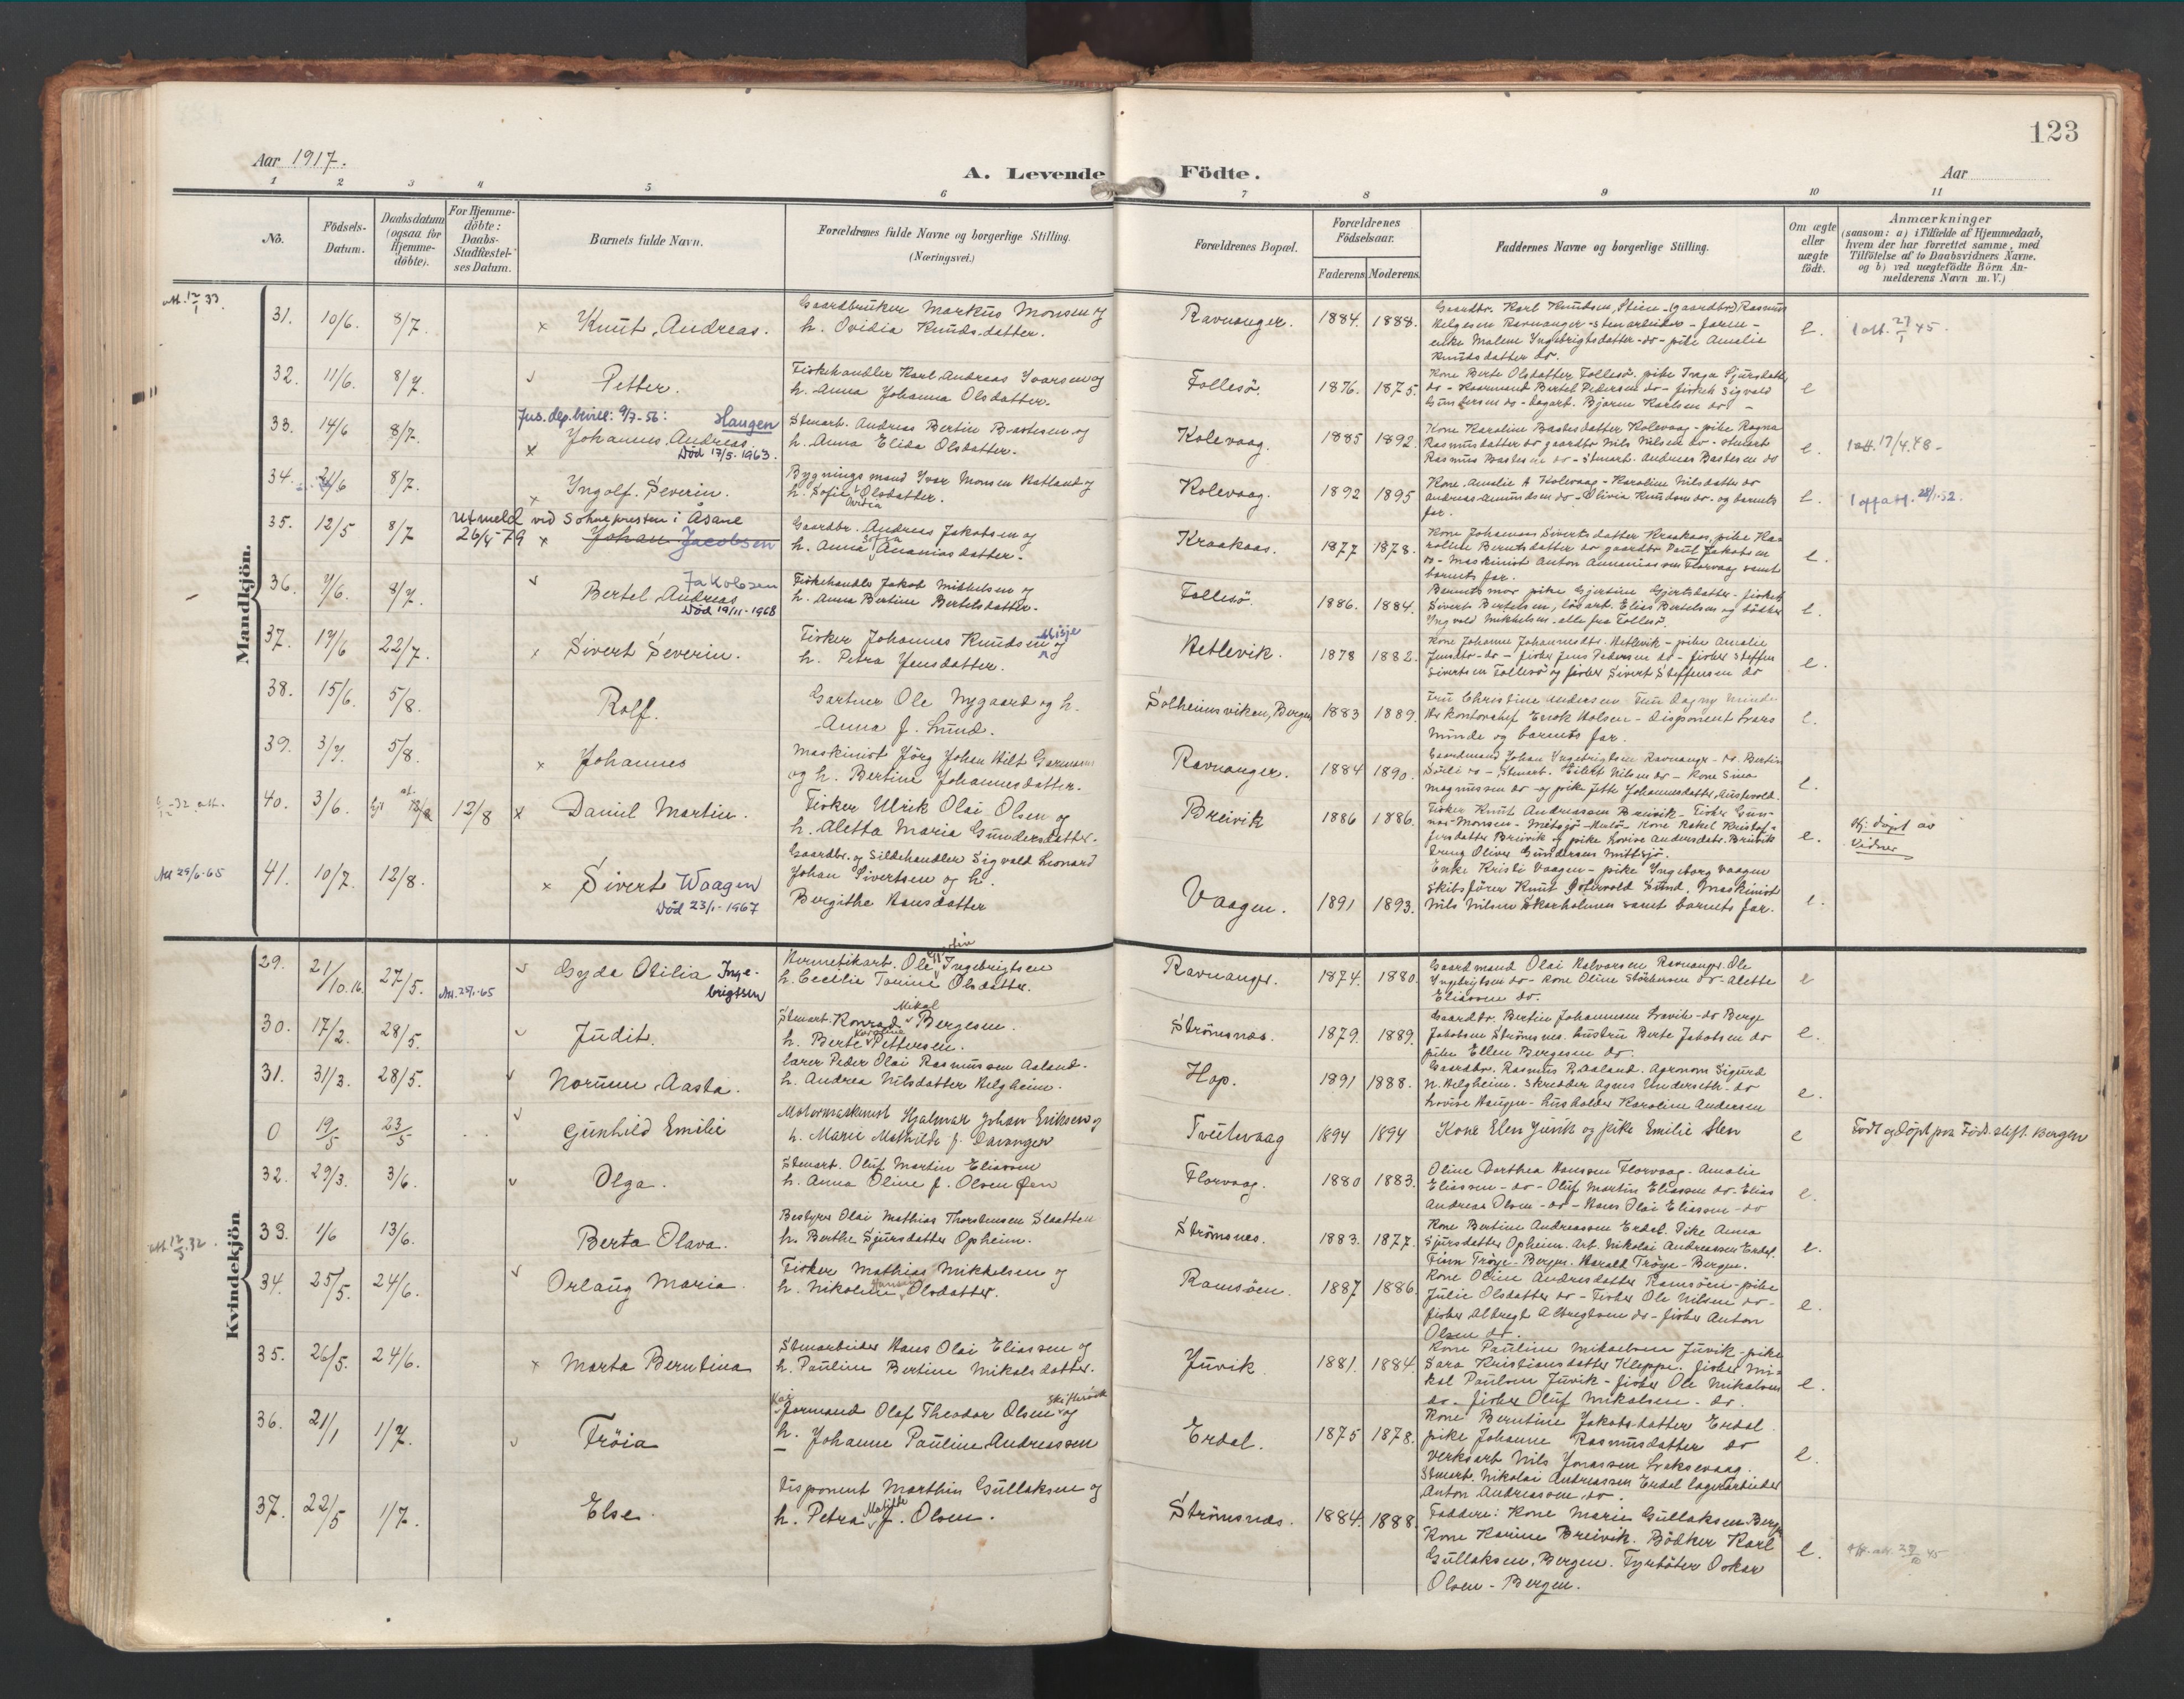 123
Aar 1917.
A. Levende Födte.
Aar
1 2 3 4 5 6 7 8 9 10 11
No.
Födsels-
Datum.
Daabsdatum
(ogsaa for
Hjemme-
döbte).
For Hjemme-
döbte:
Daabs-
Stadfæstel-
ses Datum.
Barnets fulde Navn.
Forældrenes fulde Navne og borgerlige Stilling.
(Næringsvei.)
Forældrenes Bopæl.
Forældrenes
Födselsaar.
Faderens Moderens
Faddernes Navne og borgerlige Stilling.
Om ægte
eller
uægte
födt.
Anmærkninger
(saasom: a) i Tilfælde af Hjemmedaab,
hvem der har forrettet samme, med
Tilföielse af to Daabsvidners Navne.
og b) ved uægtefödte Börn An-
melderens Navn m. V.)
Mandkjön.
31. 10/6. 8/7. x Knut Andreas.
Gaardbruker Markus Monsen og
h. Ovidia Knudsdatter.
Ravnanger. 1884. 1888.
Gaardbr. Karl Knudsen, Stien - (gaardbr) Rasmus
Helgesen Ravnanger - stenarbeider - faren -
enke Malene Ingebrigtsdatter - do - pike Amalie
Knudsdatter do.
e.
32. 11/6. 8/7. Petter.
Fiskehandler Karl Andreas Ivarsen og
h. Anna Johanna Olsdatter.
Follesö. 1876. 1875.
Kone Berte Olsdatter Follesö. pike Inga Sjursdatter
do - Kaarmand Bertel Pedersen do - fiskeh Sigvald
Gundersen do - dagarb. Bjarne Karlsen do -
e
33. 14/6 8/7. Jus. dep. bevill: 9/7-56: Haugen
x Johannes Andreas.
Död 17/5-1963.
Stenarb. Andreas Bertin Bastesen og
h. Anna Elida Olsdatter.
Kolevaag. 1885 1892.
Kone Karoline Bastesdatter Kolevaag - pike Ragna
Rasmusdatter do gaardbr Nils Nilsen do - stenarb
Rasmus Bastesen do - Stenarb. Andreas Bastesen do
e. 1 att. 17/4.48 -
34. 8/7. x Ingolf Severin.
Bygningsmand Ivar Monsen Hatland og
h. Sofie Ovidia Olsdatter.
Kolevaag. 1892 1895
Kone Amalie A Kolevaag - Karoline Nilsdatter do
Andreas Amundsen do - Olivia Knudsen do - og barnets
far.
e.
35. 12/5 8/7 Utmeld ved Sokneprester i Åsane
26/4-79 x Johan Jacobsen
Gaardbr. Andreas Jakobsen og
h. Anna Sofia Ananiasdatter.
Kraakaas. 1877 1878.
Kone Johannes Sivertsdatter Kraakaas, pike Ka-
roline Berntsdatter do gaardbr Paul Jakobsen
do - Maskinist Anton Annaniassen Florvaag samt
barnets far.
e.
36. 7/6. 8/7. Jakobsen
Bertel Andreas
Död 19/11-1968
Fiskehandler Jakob Mikkelsen og
h. Anna Bertine Bertelsdatter.
Follesö. 1886. 1884.
Barnets mor pike Gjertine Gjertsdatter - fiskeh
Sivert Bertelsen, lösarb. Elias Bertelsen og bödker
Ingvald Mikkelsen - alle fra Follesö.
e.
37. 17/6 22/7. x Sivert Severin.
Fisker Johannes Knudsen Misje og
h. Petra Jensdatter.
Hetlevik. 1878 1882.
Kone Johanne Johannesdtr. Hetlevik - pike Amalie
Jensdtr - do - fisker Jens Pedersen do - fisker Steffen
Sivertsen Follesö og fisker Sivert Steffensen do
e.
38. 15/6. 5/8. Rolf.
Gartner Ole Nygaard og h.
Anna f. Lund.
Solheimsviken, Bergen 1883 1889.
Fru Christine Andersen Fru Dagny Minde
Hr kontorchef Enok Holsen - Disponent Lars
Minde og barnets far.
e.
39. 3/7. 5/8. x Johannes
Maskinist Jörg Johan Hilt Garmann
og h. Bertine Johannesdatter.
Ravnanger. 1884 1890.
Gaardmand Johan Ingebrigtsen Ravnanger - do. Bertin
Söili do - Stenarb. Eilert Nilsen do - Kone Sina
Magnussen do - og pike Jette Johannesdatter, Austevold.
e.
40. 3/6. 12/8 x Daniel Martin.
Fisker Ulrik Olai Olsen og
h. Aletta Maria Gundersdatter.
Breivik 1886 1886.
Fisker Knut Andreassen Breivik - Fisker Gun-
nar Monsen - Mitsjö - Kone Rakel Kristof-
fersdatter Breivik og pike Lovise Andersdatr. Breivik
Dreng Oliver Gundersen Mittsjö.
e. Hj. döpt av
Vidner
41. 10/7. 12/8. x Sivert Waagen
Död 23/1-1967
Gaardbr. og Sildehandler Sigvald Leonard
Johan Sivertsen og h.
Bergithe Hansdatter
Vaagen. 1891 1893.
Enke Kristi Vaagen - pike Ingeborg Vaagen
Skibsförer Knut Golvvold Sund. Maskinist
Nils Nilsen Skarholmen samt barnets far.
e.
Kvindekjön
29. 21/10.16. 27/5. Att. 25/1-65 Gyda Otilia Inge-
brigtsen
Hermetikarb. Ole Martin Ingebrigtsen
h. Cecilie Tomine Olsdatter.
Ravnanger. 1874. 1880.
Gaardmand Olai Halvorsen Ravnanger. Ole
Ingebrigtsen do - Kone Oline Störksen do - Alette
Eliassen do.
e
30. 17/2. 28/5. Judit.
Stenarb. Konrad Mikal Bergesen.
h. Berte Kristine Pettersen.
Strömsnes. 1879. 1889.
Gaardbr. Bertin Johannesen Breivik - do Berge
Jakobsen Strömsnes. hustru Berte Jakobsen do
pike Ellen Bergesen do.
e.
31. 31/3. 28/5. Norunn Aasta.
Lærer Peder Olai Rasmussen Aaland.
h. Andrea Nilsdatter Helgheim.
Hop. 1891 1888.
Gaardbr. Rasmus P. Aaland. Agronom Sigurd
N. Helgheim. Skredder Agnes Underseth - do
Lovise Haugen - husholder Karoline Andersen
e.
0 19/5 23/5 Gunhild Emilie
Motormaskinist Hjalmar Johan Eriksen og
h. Marie Mathilde f. Davanger
Trutevaag 1894 1894
Kone Elen Junk og pike Emilie Sten
e Födt og döpt paa Föds.stift. Bergen
32. 29/3. 3/6. Olga.
Stenarb. Oluf Martin Eliassen
h. Anna Oline f. Olsen Öen
Florvaag. 1880 1883.
Oline Dorthea Hanssen Florvaag - Amalie
Eliassen - do - Oluf Martin Eliassen do - Elias
Andreas Olsen - do - Hans Olai Eliassen - do
e.
33. 1/6 13/6. Berta Olava.
Bestyrer Olai Mathias Thorstensen Slaatten
h. Berthe Sjursdatter Opheim.
Strömsnes. 1883. 1877.
Kone Bertine Andreassen Erdal. Pike Anna
Sjursdatter Opheim. Arb. Nikolai Andreassen Erdal.
Finn Tröye - Bergen. Harald Tröye - Bergen.
e.
34. 25/5. 24/6. Orlaug Maria.
Fisker Mathias Mikkelsen og
h. Nikoline Olsdatter.
Ramsöen. 1887 1886.
Kone Oline Andersdatter Ramsöen - pike
Julie Olsdatter do - Fisker Ole Nilsen do -
fisker Albregt Albregtsen do - fisker Anton
Olsen do.
e.
35. 26/5. 24/6. x Marta Berntina
Stenarbeider Hans Olai Eliassen og
h. Pauline Bertine Mikalsdatter.
Juvik. 1881. 1884.
Kone Pauline Mikaelsen Juvik - pike
Sara Kristiansdatter Kleppe. fisker Mi-
kal Paulsen Juvik - fisker Ole Mikalsen
do - fisker Oluf Mikalsen - do.
e.
36. 21/1 1/7. Tröia
Formand Olaf Theodor Olsen og
h. Johanne Pauline Andreassen
Erdal. 1875 1878.
Kone Berntine Jakobsdatter Erdal.
pike Johanne Rasmusdatter do
Verksarb Nils Jonassen Laksevaag.
Stenarb. Nikolai Andreassen Erdal lagerarbeider
Anton Andreassen do.
e.
37. 22/5 1/7. Else.
Disponent Marthin Gullaksen og
h. Petra Matilde f. Olsen.
Strömsnes. 1884. 1888.
Faddere: Kone Marie Gullaksen Bergen
Kone Karine Breivik. Bödker Karl
Gullaksen. Bergen. Fyrböter Oskar
Olsen - Bergen.
e.